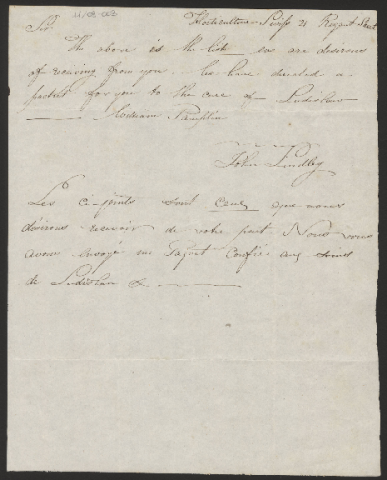 Sir
Horticulture 21 Regent Street
The above is the list we are desirous
of receiving from you. We have directed a
packet for you to the care of
John Lindley
Les ci-joints sont ceux que nous
désirons recevoir de votre part. Nous vous
avons envoyé un paquet confié aux soins
de &